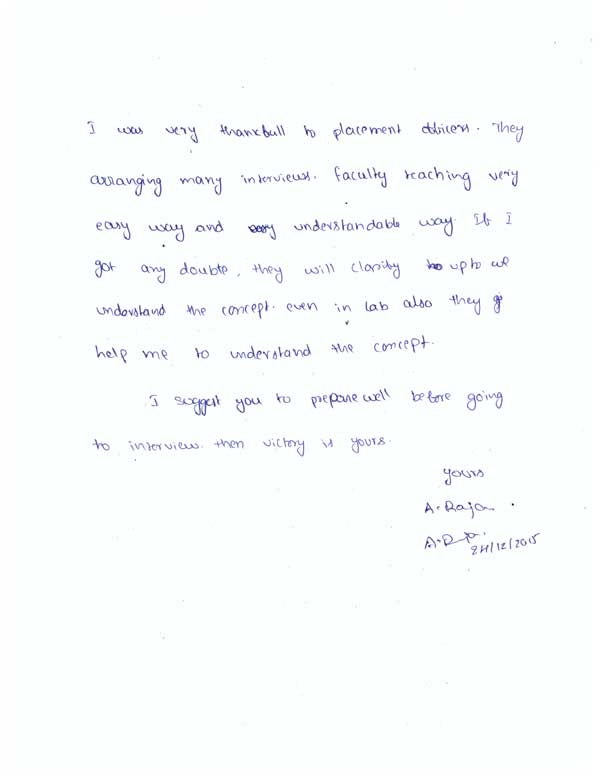 I was very thankfull to placement officers. They
arranging many interviews. faculty teaching very
easy way and understandable way. If I
got any doubte, they will clarify upto we
understand the concept. even in lab also they
help me to understand the concept.
I suggest you to prepare well before going
to interview. then victory is yours.
yours
A. Raja
24/12/2015